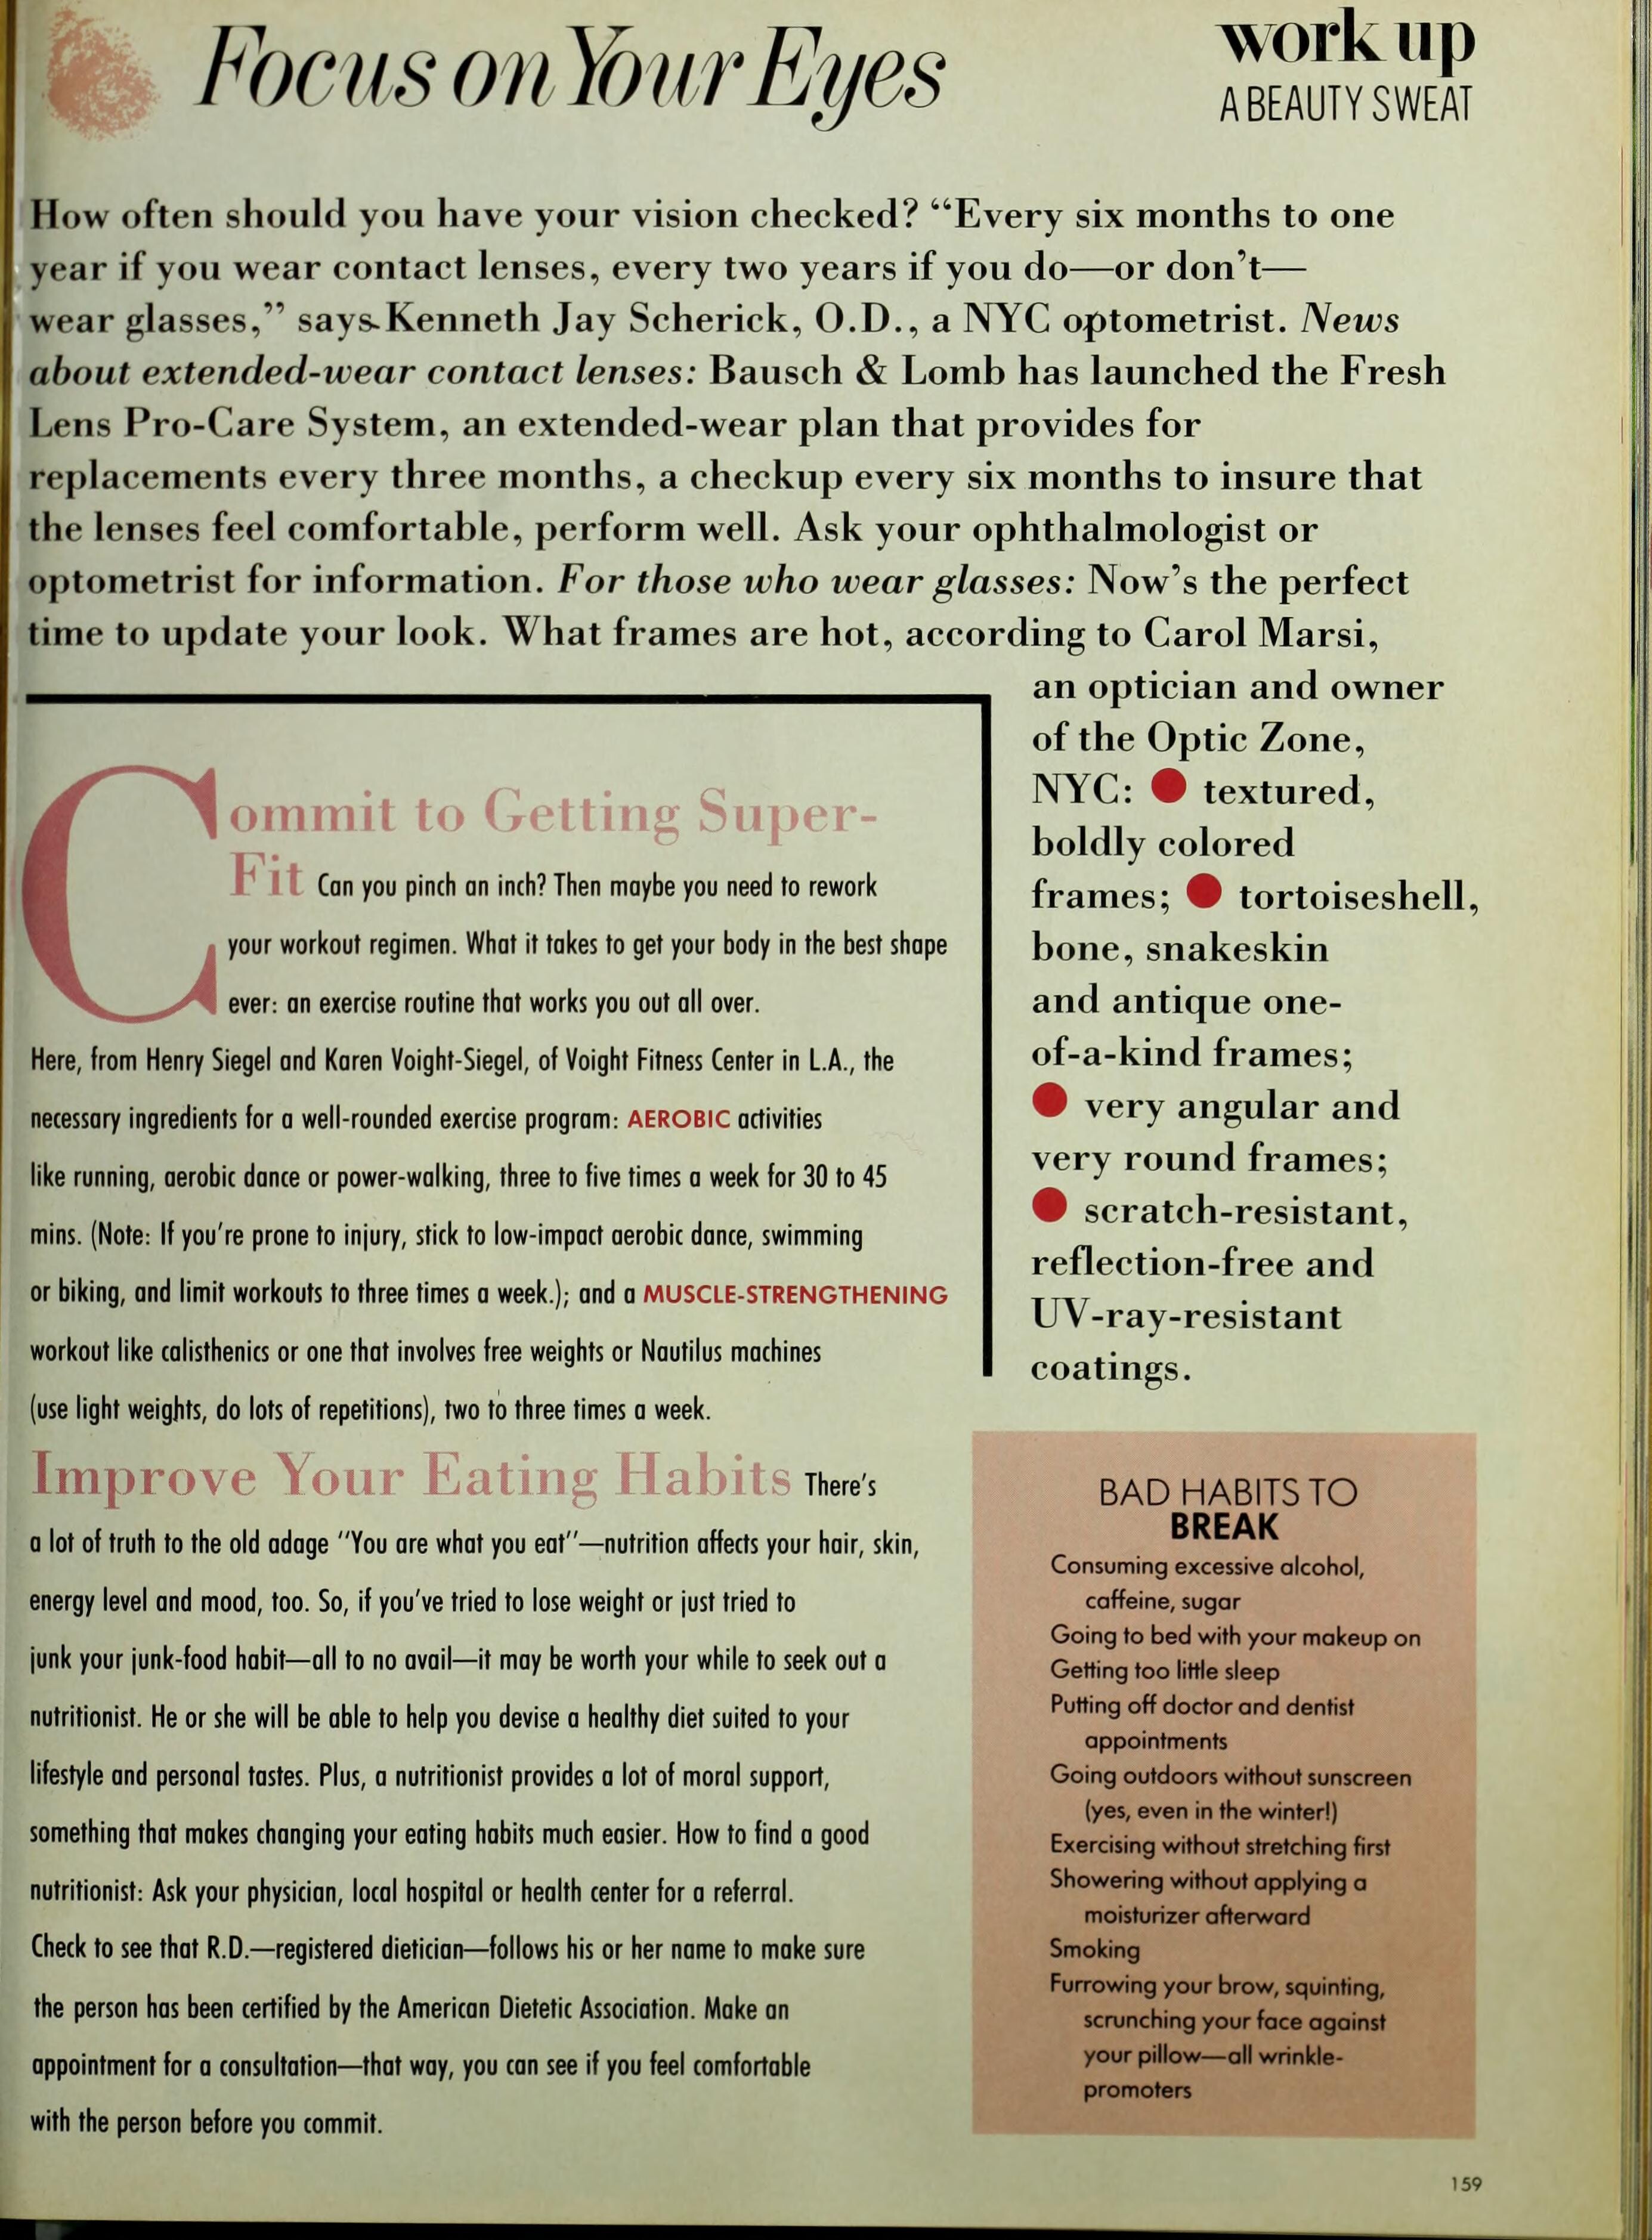 Focus on Your Eyes
work up
A BEAUTY SWEAT
How often should you have your vision checked? “Every six months to one
year if you wear contact lenses, every two years if you do—or don’t—
wear glasses,” says Kenneth Jay Scherick, O.D., a NYC optometrist. News
about extended-wear contact lenses: Bausch & Lomb has launched the Fresh
Lens Pro-Care System, an extended-wear plan that provides for
replacements every three months, a checkup every six months to insure that
the lenses feel comfortable, perform well. Ask your ophthalmologist or
optometrist for information. For those who wear glasses: Now’s the perfect
time to update your look. What frames are hot, according to Carol Marsi,
an optician and owner
of the Optic Zone,
NYC: ● textured,
boldly colored
frames; ● tortoiseshell,
bone, snakeskin
and antique one-
of-a-kind frames;
● very angular and
very round frames;
● scratch-resistant,
reflection-free and
UV-ray-resistant
coatings.
Commit to Getting Super-
Fit Can you pinch an inch? Then maybe you need to rework
your workout regimen. What it takes to get your body in the best shape
ever: an exercise routine that works you out all over.
Here, from Henry Siegel and Karen Voight-Siegel, of Voight Fitness Center in L.A., the
necessary ingredients for a well-rounded exercise program: AEROBIC activities
like running, aerobic dance or power-walking, three to five times a week for 30 to 45
mins. (Note: If you're prone to injury, stick to low-impact aerobic dance, swimming
or biking, and limit workouts to three times a week.); and a MUSCLE-STRENGTHENING
workout like calisthenics or one that involves free weights or Nautilus machines
(use light weights, do lots of repetitions), two to three times a week.
Improve Your Eating Habits There's
a lot of truth to the old adage "You are what you eat"—nutrition affects your hair, skin,
energy level and mood, too. So, if you've tried to lose weight or just tried to
junk your junk-food habit—all to no avail—it may be worth your while to seek out a
nutritionist. He or she will be able to help you devise a healthy diet suited to your
lifestyle and personal tastes. Plus, a nutritionist provides a lot of moral support,
something that makes changing your eating habits much easier. How to find a good
nutritionist: Ask your physician, local hospital or health center for a referral.
Check to see that R.D.—registered dietician—follows his or her name to make sure
the person has been certified by the American Dietetic Association. Make an
appointment for a consultation—that way, you can see if you feel comfortable
with the person before you commit.
BAD HABITS TO
BREAK
Consuming excessive alcohol,
caffeine, sugar
Going to bed with your makeup on
Getting too little sleep
Putting off doctor and dentist
appointments
Going outdoors without sunscreen
(yes, even in the winter!)
Exercising without stretching first
Showering without applying a
moisturizer afterward
Smoking
Furrowing your brow, squinting,
scrunching your face against
your pillow—all wrinkle-
promoters
159